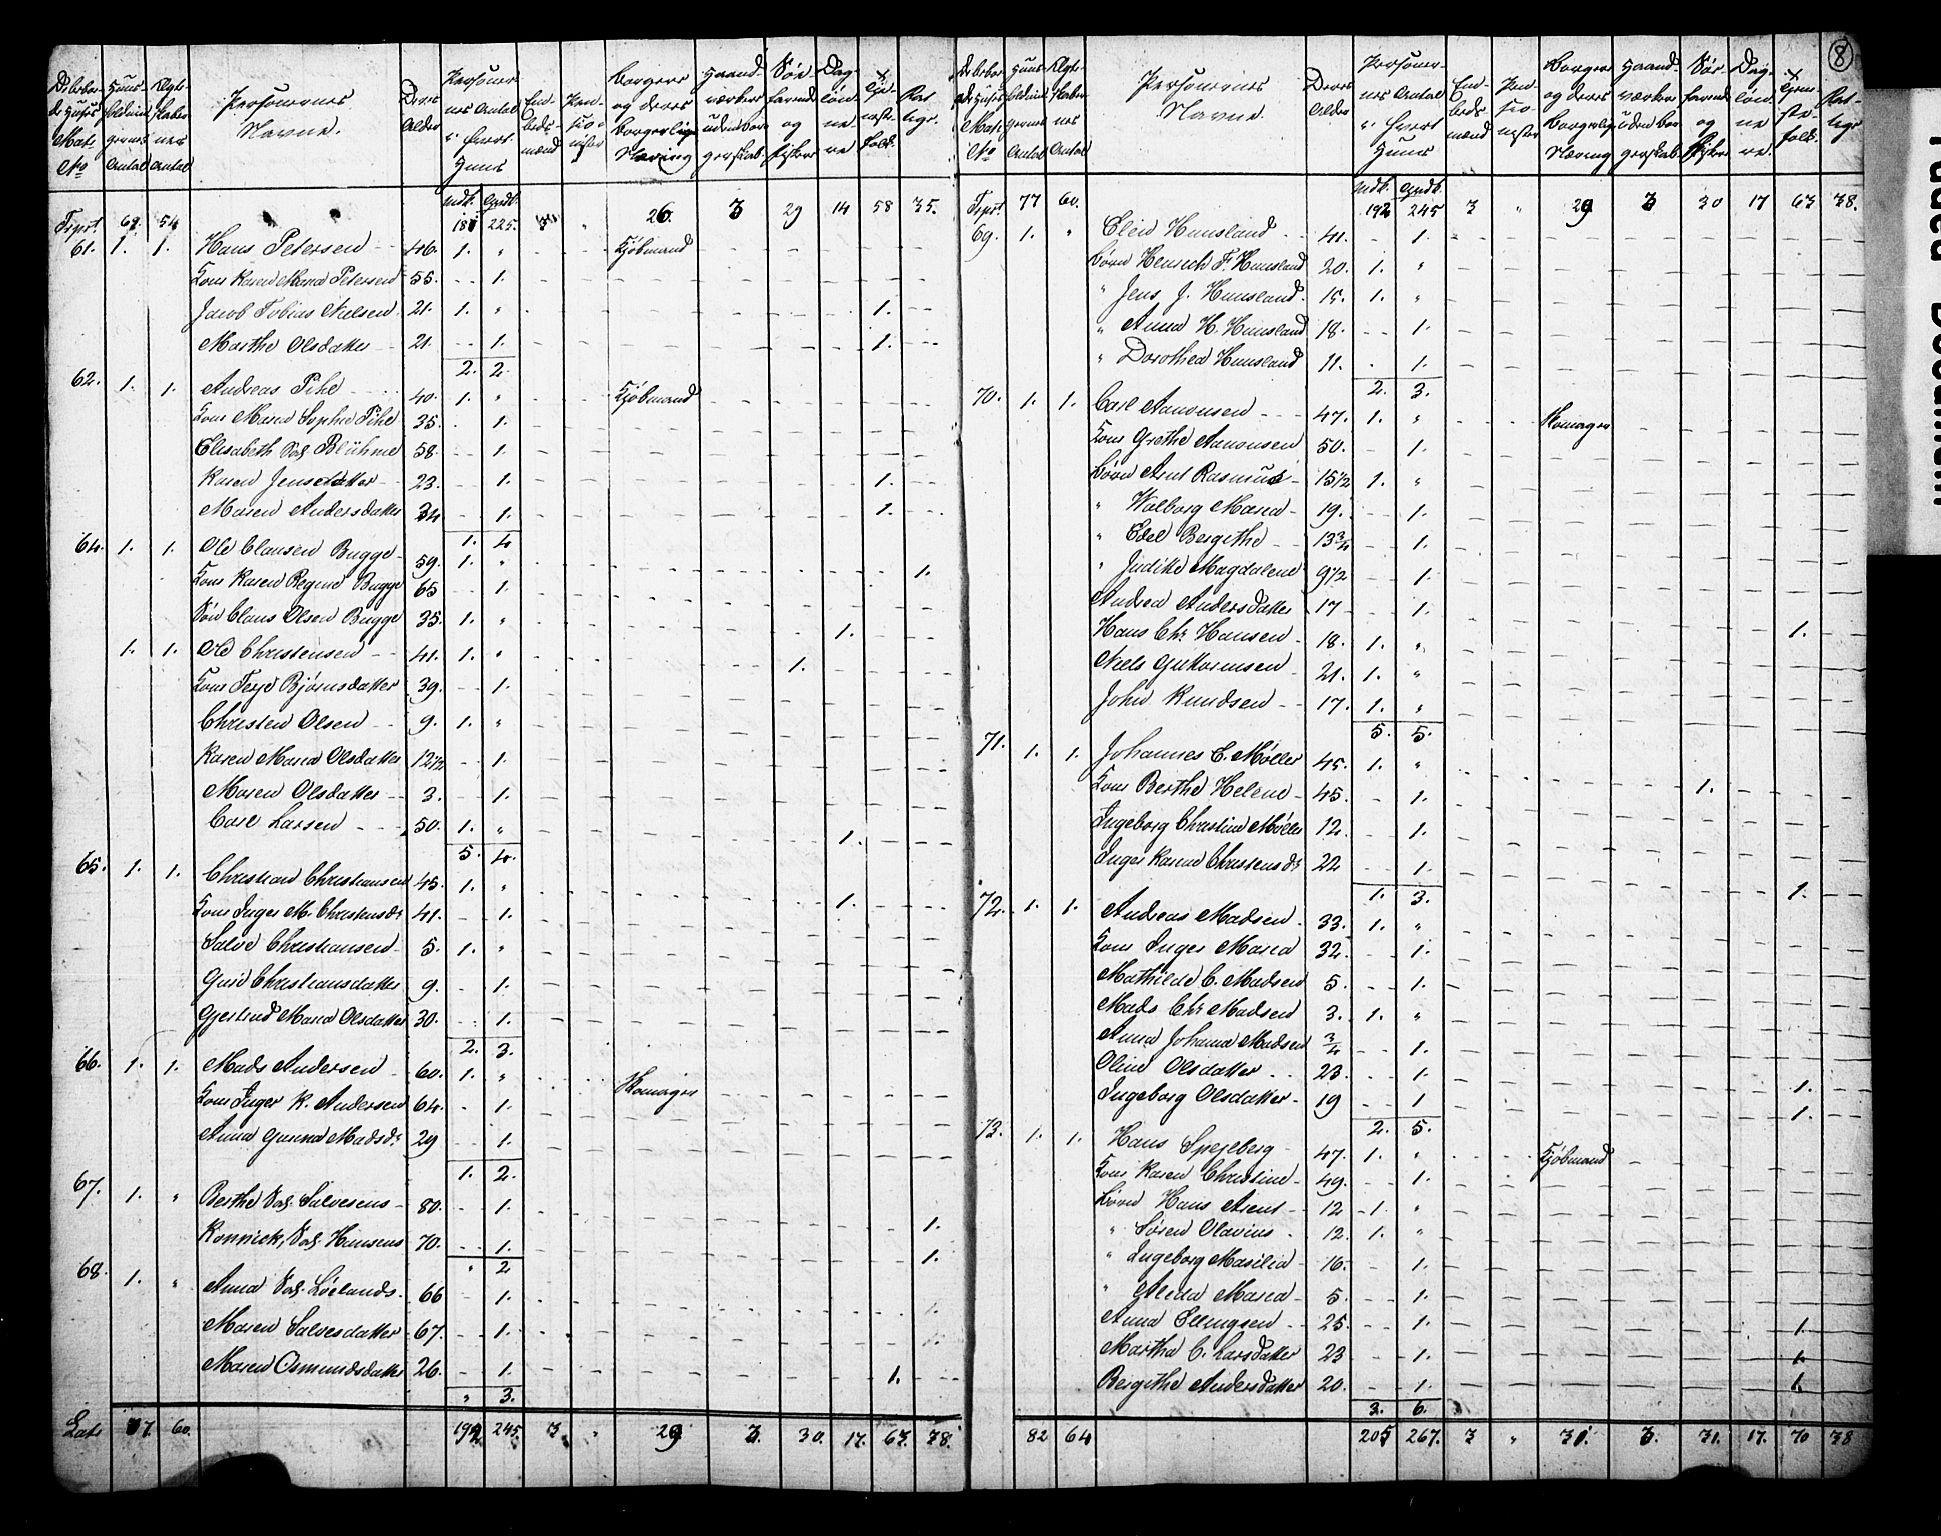 8
De beboe- de Huses Mat: No | Huus- holdnin- gernes Antal | Ægte- skaber- nes Antal | Personernes Navne. | Deres Alder | Personer- nes Antal i hvert Huus | Em- beds- mænd | Pen- sio- nister | Borgere og deres borgerlige Næring | Haand- værkere uden bor- gerskab | Søe- farende og fiskere | Dag- løn- ne- re | Tjen- este- folk. | Fat- tige.
Mdk. Qvdk.
Trpt. 69. 54 181 225. 3 " 26. 3 29 14 58 35.
61. 1. 1. Hans Petersen 46. 1. " Kjøbmand
Kone Karen Maria Petersen 55. 1.
Jacob Tobias Nielsen 21. 1. " 1.
Marthe Olsdatter 21. 1. 1.
2. 2.
62. 1. 1. Andreas Pihl 40. 1. " Kjøbmand
Kone Maren Sophie Pihl 35. 1.
Elisabeth Sal. Blühme 58. 1.
Karen Jensdatter 23. 1. 1.
Maren Andersdatter 34 1. 1.
1. 4
64. 1. 1. Ole Clausen Bugge 59. 1. "
Kone Karen Regine Bugge 65 1. 1.
Søn Claus Olsen Bugge 35. 1. " 1.
1. 1. Ole Christensen 41. 1. " 1.
Kone Terje Bjørnsdatter 39. 1.
Christen Olsen 9. 1. "
Karen Maria Olsdatter 12 1/2 1.
Maren Olsdatter 3. 1.
Carl Larsen 50. 1. " 1.
5. 4.
65. 1. 1. Christian Christiansen 45. 1. "
Kone Inger M. Christensdr 41. 1. 1.
Salve Christiansen 5. 1. "
Guri Christiansdatter 9. 1.
Gjertrud Maria Olsdatter 30. 1.
2. 3.
66. 1. 1. Mads Andersen 60. 1. "
Kone Inger K. Andersen 64. 1.
Anna Gurina Madsdr 29 1.
1. 2.
67. 1. " Berthe Sal. Salvesens 80. 1. 1.
Sal. Hansens 70. 1. 1.
" 2
68. 1. " Anna Sal. Løelands 66 1. 1.
Maren Salvesdatter 67. 1. 1.
Maren Osmundsdatter 26. 1. 1.
" 3.
Lats 77. 60. 192 245. 3 " 29 3. 30. 17. 63. 38.
De beboe- de Huses Mat: No | Huus- holdnin- gernes Antal | Ægte- skaber- nes Antal | Personernes Navne. | Deres Alder | Personer- nes Antal i hvert Huus | Em- beds- mænd | Pen- sio- nister | Borgere og deres borgerlige Næring | Haand- værkere uden bor- gerskab | Søe- farende og fiskere | Dag- løn- ne- re. | Tjene- ste- folk. | Fat- tige
Mdk. Qvdk.
Trpt. 77 60. 192 245 3 " 29 3 30 17 63 38.
69. 1. " Elen Huusland 41. 1.
Børn Henrich F. Huusland 20. 1. "
" Jens J. Huusland 15. 1. "
" Anna H. Huusland 18. 1.
" Dorothea Huusland 11. 1.
2. 3.
70. 1. 1. Carl Aanonsen 47. 1. "
Kone Grethe Aanonsen 50. 1.
Børn Arnt Rasmus 15 1/2 1. "
" Wolborg Maria 19. 1.
" Edel Bergithe 13 3/4 1.
" Judithe Magdalene 9 1/2 1.
Andrea Andersdatter 17 1. 1.
Hans Chr. Hansen 18. 1. "
Niels Guttormsen 21. 1. "
John Knudsen 17. 1. "
5. 5.
71. 1. 1. Johannes C. Møller 45. 1. "
Kone Berthe Helene 45. 1. 1.
Ingeborg Christine Møller 12. 1.
Inger Karine Christensdr 22 1. 1.
1. 3.
72. 1. 1. Andreas Madsen 33. 1. "
Kone Inger Maria 32. 1.
Mathilde C. Madsen 5. 1.
Mads Chr. Madsen 3. 1. "
Anna Johanna Madsen 3/4 1.
Oline Olsdatter 23. 1. 1.
Ingeborg Olsdatter 19 1 1.
2. 5.
73. 1. 1. Hans Spejlberg 47. 1. " Kjøbmand
Kone Karen Christine 49. 1.
Børn Hans Arent 12 1. "
" Søren Olavius 12. 1. "
" Ingeborg Masilia 16. 1.
" Aleda Maria 5. 1.
Anna Ellingsen 25. 1. 1.
Martha C. Larsdatter 23 1. 1.
Bergithe Andersdatter 20. 1. 1.
3. 6.
82 64 205 267. 3 " 31. 3. 31. 17. 70 38